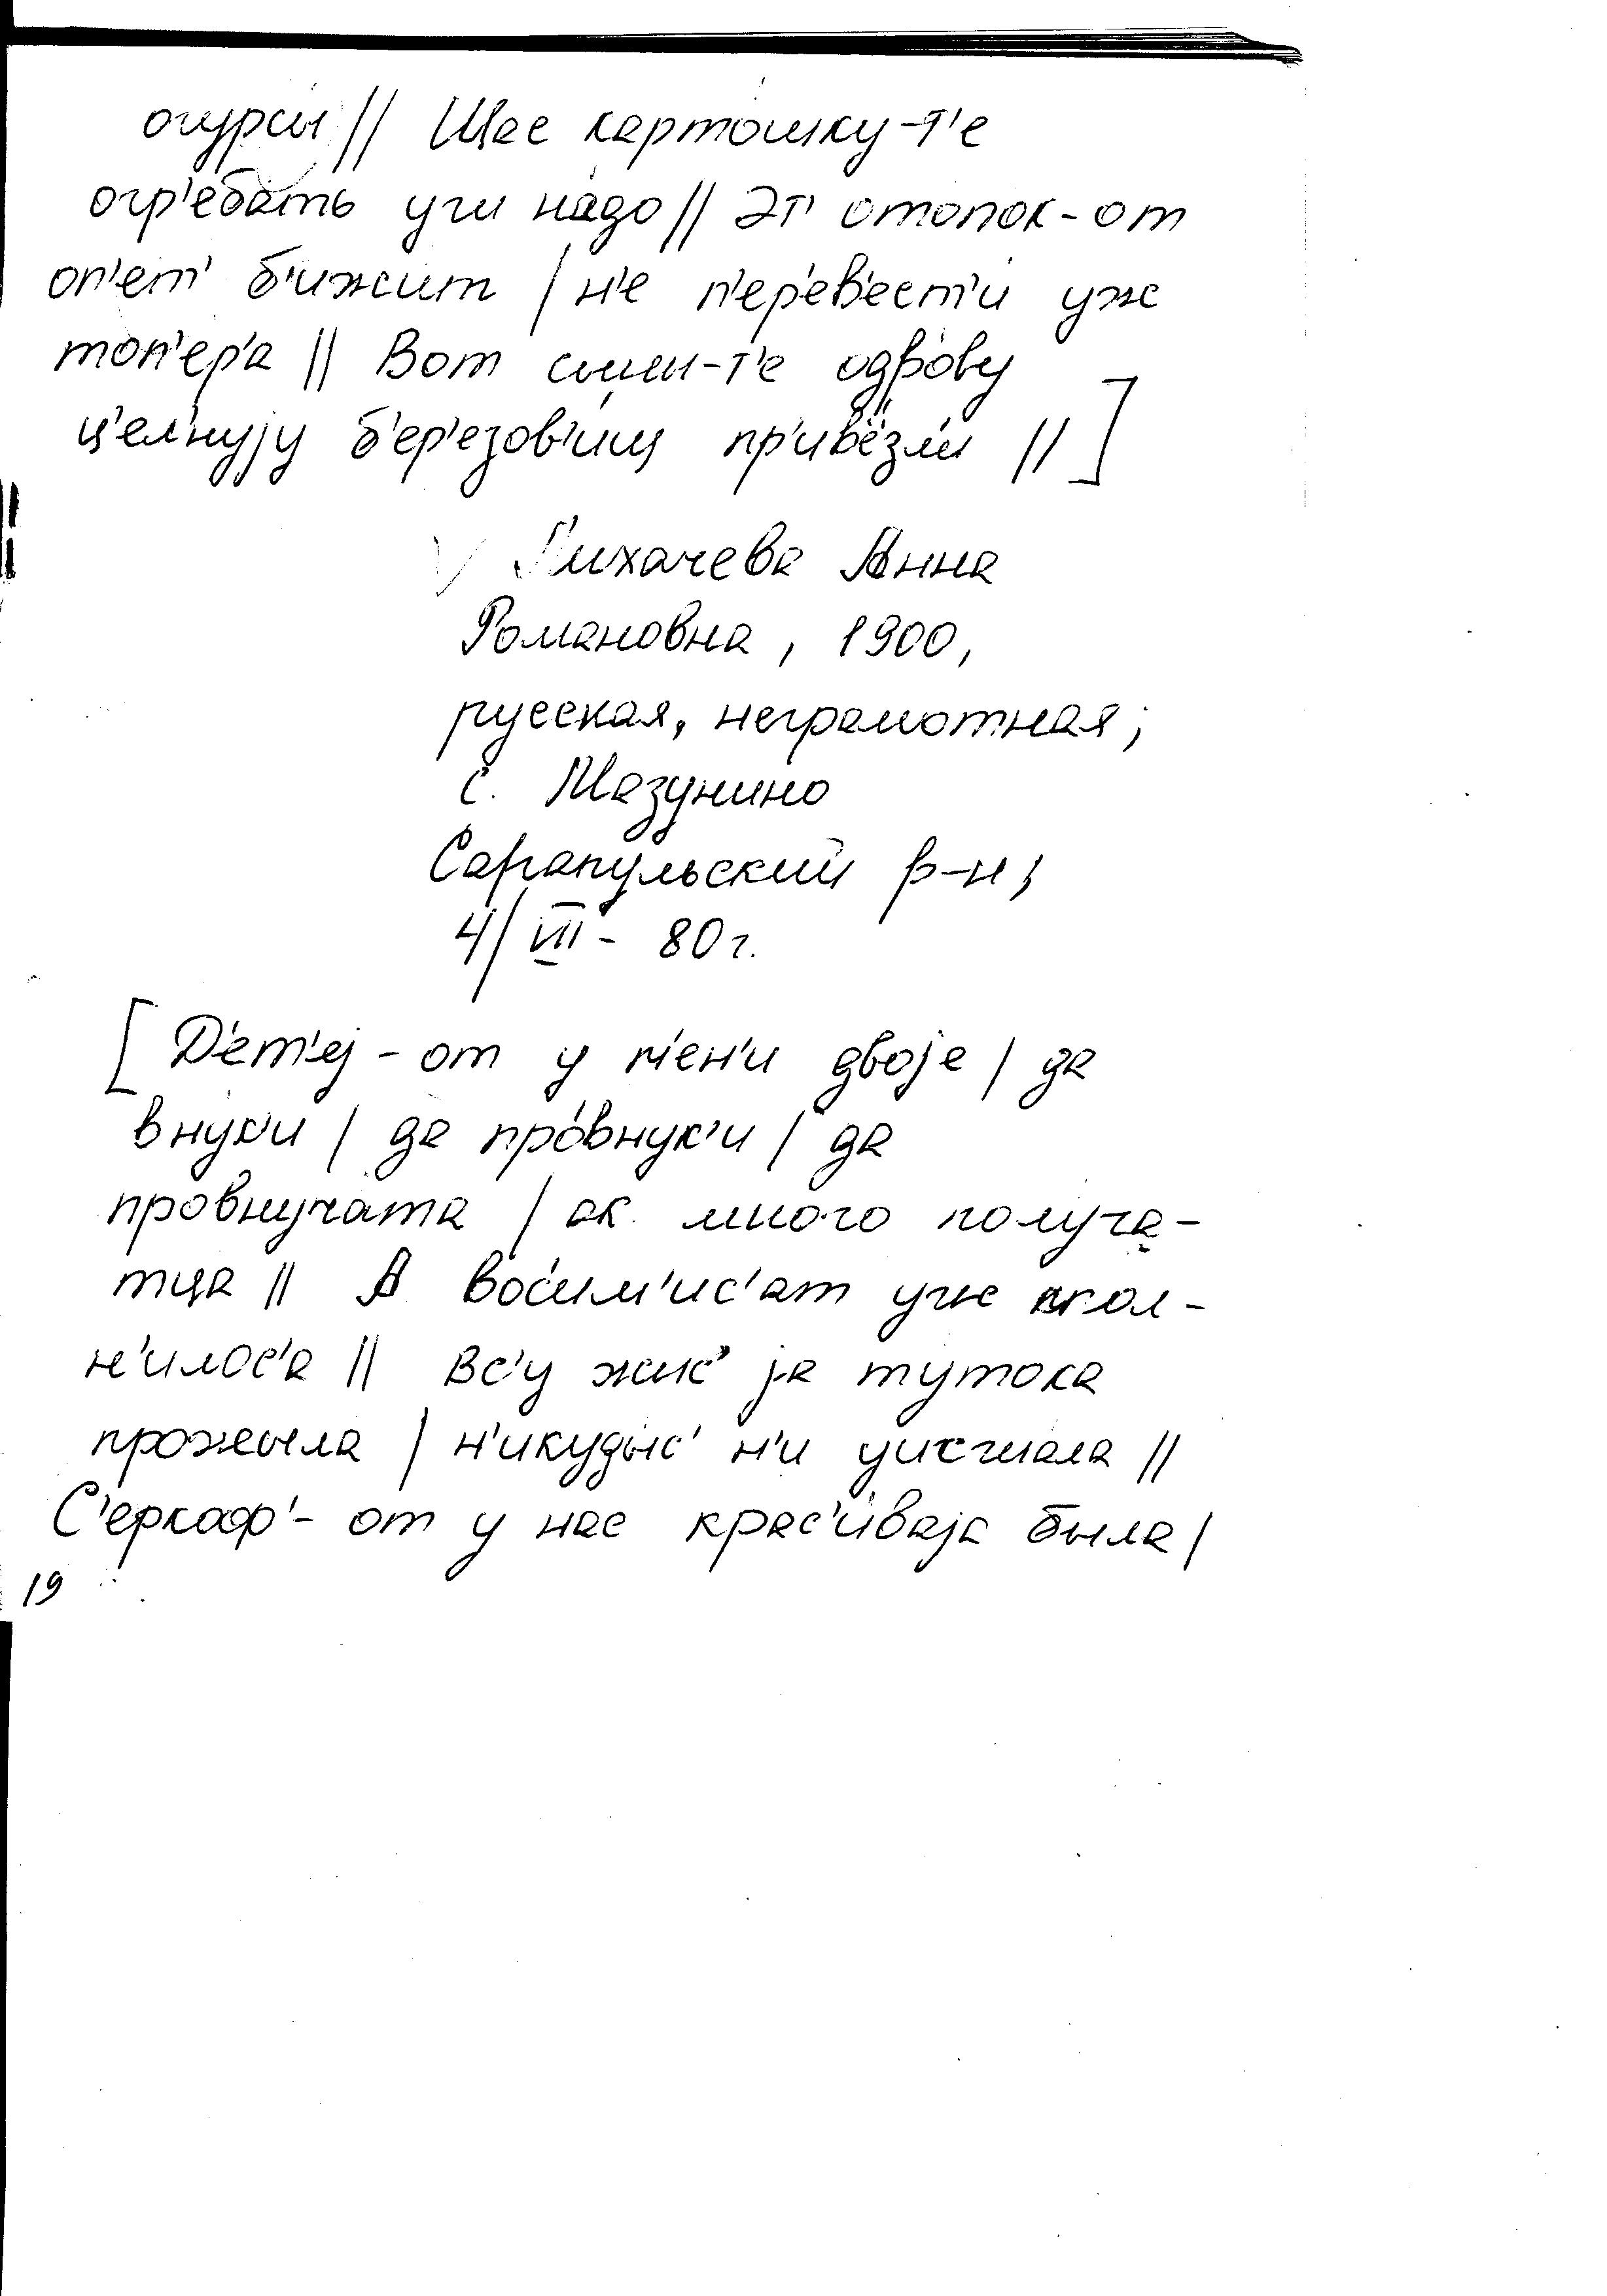 огурсы // Шас картошку-т'е
огр'еба́ть ужи на́до // Эт' отопок-от
оп'ет' б'ижит / н'е п'ер'ев'ест'и уж
топ'ер'а // Вот сыны-т'е одво́ву
ц'ел'нуjу б'ер'езов'иц пр'ив'ёзли //]
Лихачева Анна
Романовна, 1900,
русская, неграмотная;
с. Мазунино
Сарапульский р-н;
4/VIII - 80 г.
[Д'ет'еj-от у м'ен'и двоjе / да
внук'и / да про́внук'и / да
провнуча́та / ак много получа-
тца // А вос'им'ис'ат уж испол-
н'илос'а // Вс'у жис' jа тутока
прожыла / н'икудыс' н'и уисжала //
С'еркоф'-от у нас крас'иваjа была /
19